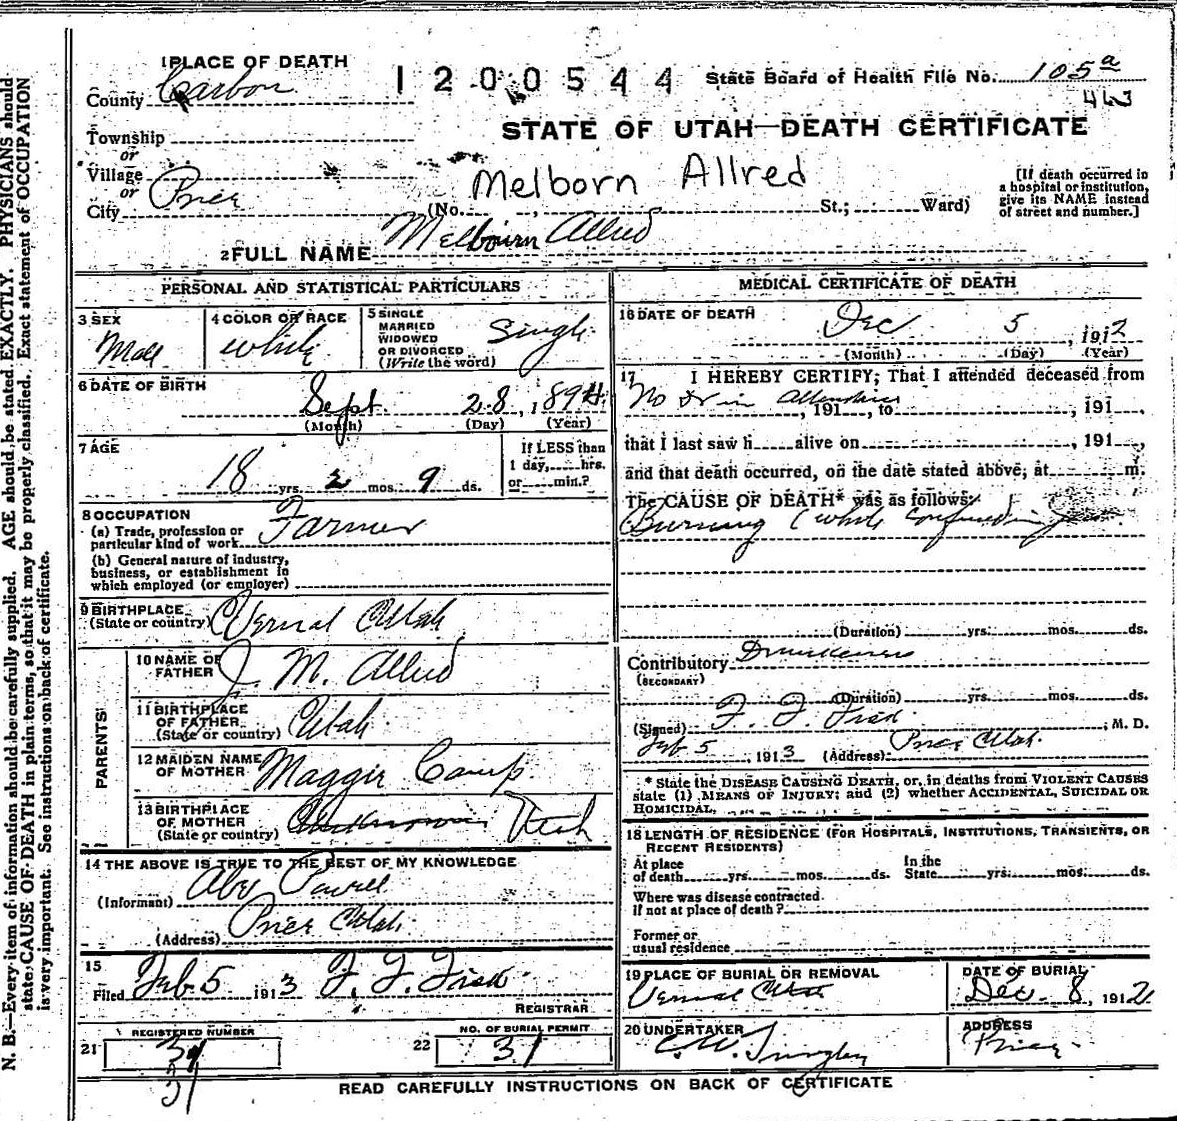 1 PLACE OF DEATH
County Carbon
Township
or
Village
or
City Price
1200544
State Board of Health File No. 105a
463
STATE OF UTAH—DEATH CERTIFICATE
Melborn Allred
(No. , St.; Ward)
[If death occurred in a hospital or institution, give its NAME instead of street and number.]
2 FULL NAME Melbourn Allred
PERSONAL AND STATISTICAL PARTICULARS
3 SEX
Male
4 COLOR OR RACE
White
5 SINGLE
MARRIED
WIDOWED
OR DIVORCED
(Write the word)
Single
6 DATE OF BIRTH
Sept. 28, 1894
(Month) (Day) (Year)
7 AGE
18 yrs. 2 mos. 9 ds.
If LESS than
1 day, hrs.
or min.?
8 OCCUPATION
(a) Trade, profession or
particular kind of work Farmer
(b) General nature of industry,
business, or establishment in
which employed (or employer)
9 BIRTHPLACE
(State or country) Vernal Utah
PARENTS
10 NAME OF
FATHER J. M. Allred
11 BIRTHPLACE
OF FATHER
(State or country) Utah
12 MAIDEN NAME
OF MOTHER Maggie Camp
13 BIRTHPLACE
OF MOTHER
(State or country) Unknown Utah
14 THE ABOVE IS TRUE TO THE BEST OF MY KNOWLEDGE
(Informant) Abe Powell
(Address) Price Utah.
15
Filed Feb. 5 1913 F. F. Fisk
REGISTRAR
REGISTERED NUMBER
21 31
31
NO. OF BURIAL PERMIT
22 31
MEDICAL CERTIFICATE OF DEATH
16 DATE OF DEATH
Dec 5, 1912
(Month) (Day) (Year)
17 I HEREBY CERTIFY; That I attended deceased from
No Dr in attendance, 191 , to , 191 ,
that I last saw h alive on , 191 ,
and that death occurred, on the date stated above, at m.
The CAUSE OF DEATH* was as follows:
Burning (while confined in
(Duration) yrs. mos. ds.
Contributory Drunkenness
(SECONDARY)
(Duration) yrs. mos. ds.
(Signed) F. F. Fisk, M. D.
Feb 5, 1913 (Address) Price Utah.
* State the DISEASE CAUSING DEATH, or, in deaths from VIOLENT CAUSES
state (1) MEANS OF INJURY; and (2) whether ACCIDENTAL, SUICIDAL OR
HOMICIDAL.
18 LENGTH OF RESIDENCE (FOR HOSPITALS, INSTITUTIONS, TRANSIENTS, OR
RECENT RESIDENTS)
At place
of death yrs. mos. ds.
In the
State yrs. mos. ds.
Where was disease contracted
if not at place of death?
Former or
usual residence
19 PLACE OF BURIAL OR REMOVAL
Vernal Utah
DATE OF BURIAL
Dec. 8, 1912
20 UNDERTAKER
C. W. Tingley
ADDRESS
Price
READ CAREFULLY INSTRUCTIONS ON BACK OF CERTIFICATE
N. B.—Every item of information should be carefully supplied. AGE should be stated EXACTLY. PHYSICIANS should
state CAUSE OF DEATH in plain terms, so that it may be properly classified. Exact statement of OCCUPATION
is very important. See instructions on back of certificate.